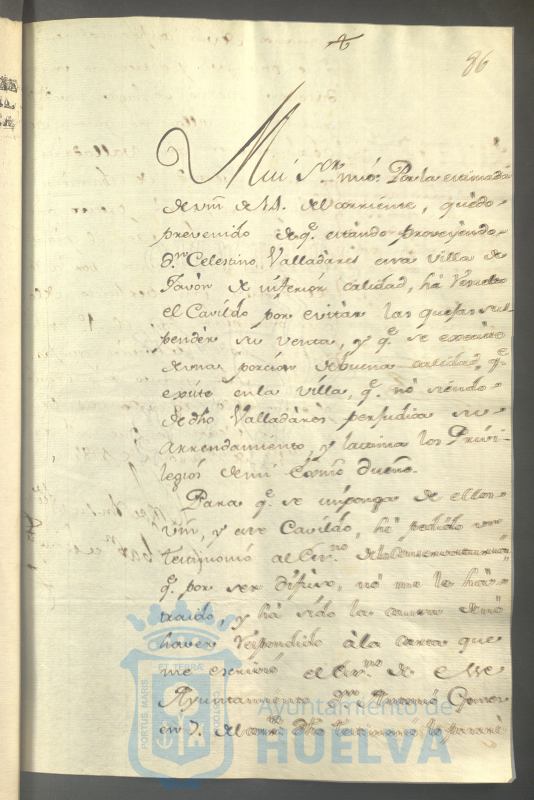 86
Mui Sor. mio: Por la estimada
de vm de 14. del corriente, quedo
prevenido de q.e estando proveyendo
Dn. Celestino Valladares esta villa de
Javon de inferior calidad, ha resuelto
el Cavildo por evitar las quejas sus
pender su venta, y q.e se execute
de una porcion de buena calidad, q.e
existe en la villa, q.e no siendo
de dho Valladares perjudica su
arrendamiento, y lastima los Privi-
legios de mi Exmo dueño.
Para q.e se imponga de ellos
vm, y ese Cavildo, he pedido un
testimonio al Ess.no de la
q.e por ser difuso, no me le han
traido, y ha sido la causa de no
haver respondido à la carta que
me escrivió el Ess.no de ese
Ayuntamiento Dn. Antonio Gomez
en 7. del corr.te dho testimonio lo
PORTUS MARIS
ET TERRÆ
CUSTODIA
Ayuntamiento de
HUELVA